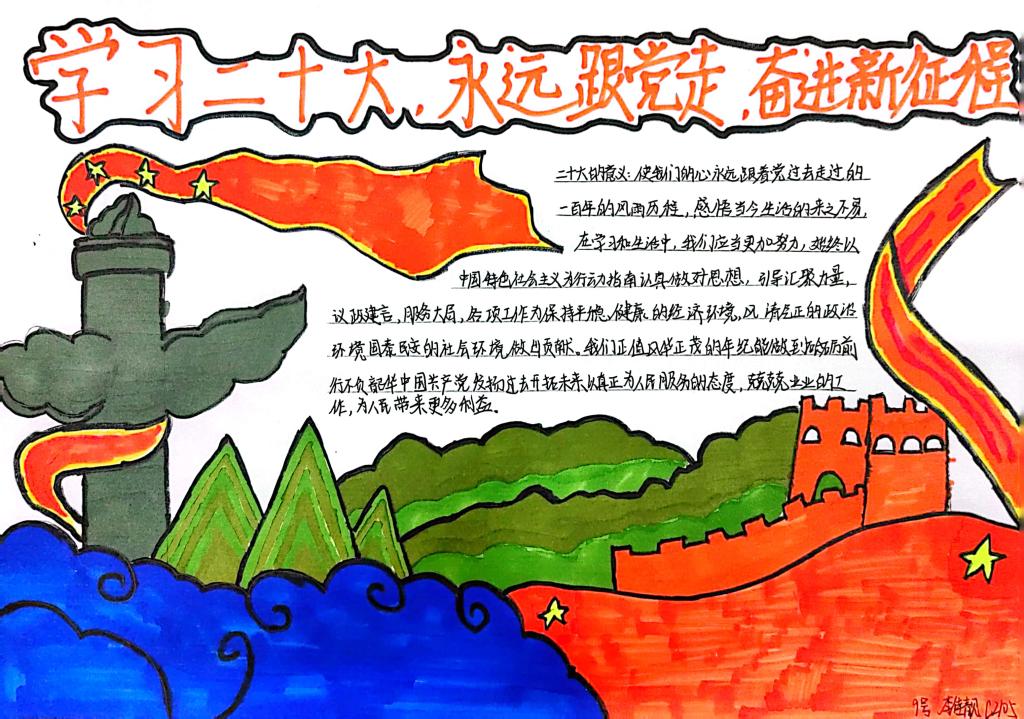 学习二十大，永远跟党走，奋进新征程
二十大的意义：使我们的心永远跟着党过去走过的
一百年的风雨历程，感悟当今生活的来之不易，
在学习和生活中，我们应当更加努力，始终以
中国特色社会主义为行动指南认真做对思想，引导汇聚力量，
议政建言，服务大局，各项工作为保持平稳健康的经济环境，风清气正的政治
环境国泰民安的社会环境做出贡献。我们正值风华正茂的年纪能做到踔厉前
行不负韶华中国共产党发扬过去开拓未来认真正为人民服务的态度，兢兢业业的工
作，为人民带来更多利益。
9号 C2105